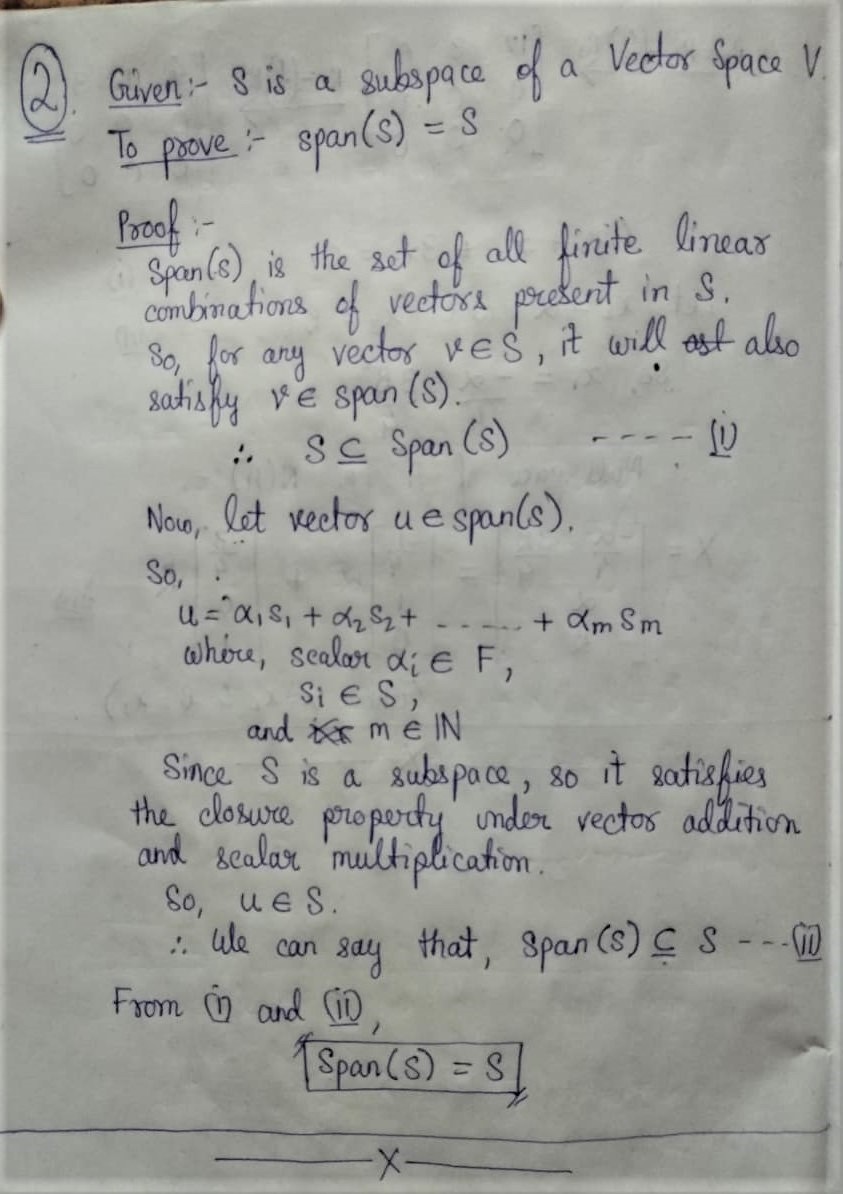 2. Given :- S is a subspace of a Vector Space V.
To prove :- span(S) = S
Proof :-
Span(S) is the set of all finite linear
combinations of vectors present in S.
So, for any vector v ∈ S, it will also
satisfy v ∈ span (S).
∴ S ⊆ Span (S) ---- (i)
Now, let vector u ∈ span(S).
So,
u = α₁s₁ + α₂s₂ + ------ + αm sm
where, scalar αi ∈ F,
si ∈ S,
and m ∈ IN
Since S is a subspace, so it satisfies
the closure property under vector addition
and scalar multiplication.
So, u ∈ S.
∴ We can say that, Span (S) ⊆ S --- (ii)
From (i) and (ii),
Span (S) = S
X